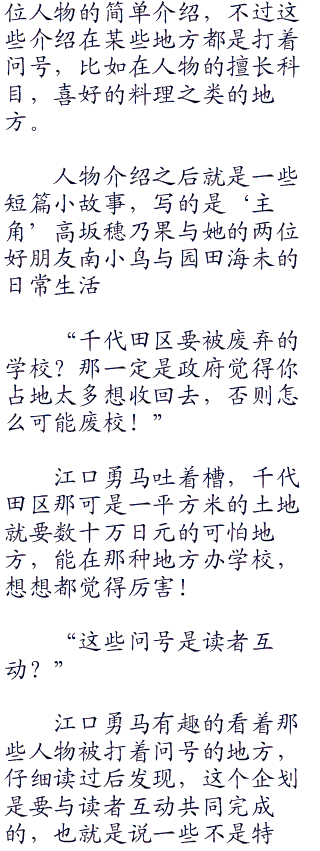 位人物的简单介绍，不过这
些介绍在某些地方都是打着
问号，比如在人物的擅长科
目，喜好的料理之类的地
方。
人物介绍之后就是一些
短篇小故事，写的是‘主
角’高坂穗乃果与她的两位
好朋友南小鸟与园田海未的
日常生活
“千代田区要被废弃的
学校？那一定是政府觉得你
占地太多想收回去，否则怎
么可能废校！”
江口勇马吐着槽，千代
田区那可是一平方米的土地
就要数十万日元的可怕地
方，能在那种地方办学校，
想想都觉得厉害！
“这些问号是读者互
动？”
江口勇马有趣的看着那
些人物被打着问号的地方，
仔细读过后发现，这个企划
是要与读者互动共同完成
的，也就是说一些不是特